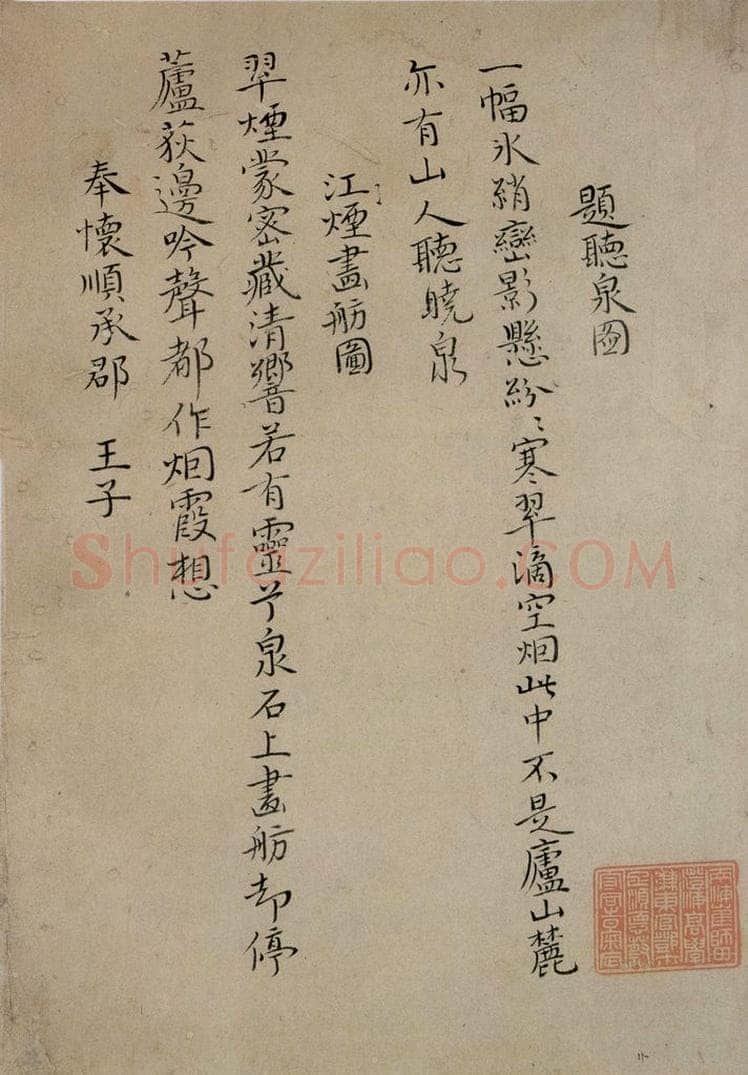 題聽泉圖
一幅氷綃巒影懸紛〻寒翠滴空烟此中不是廬山麓
亦有山人聽曉泉
江煙畫舫圖
翠煙蒙密藏清響若有靈兮泉石上畫舫却停
蘆荻邊吟聲都作烟霞想
奉懷順承郡 王子
Shufaziliao.COM